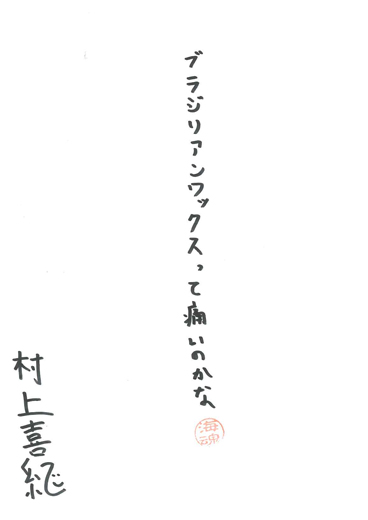 ブラジリアンワックスって痛いのかな
海魂
村上喜継